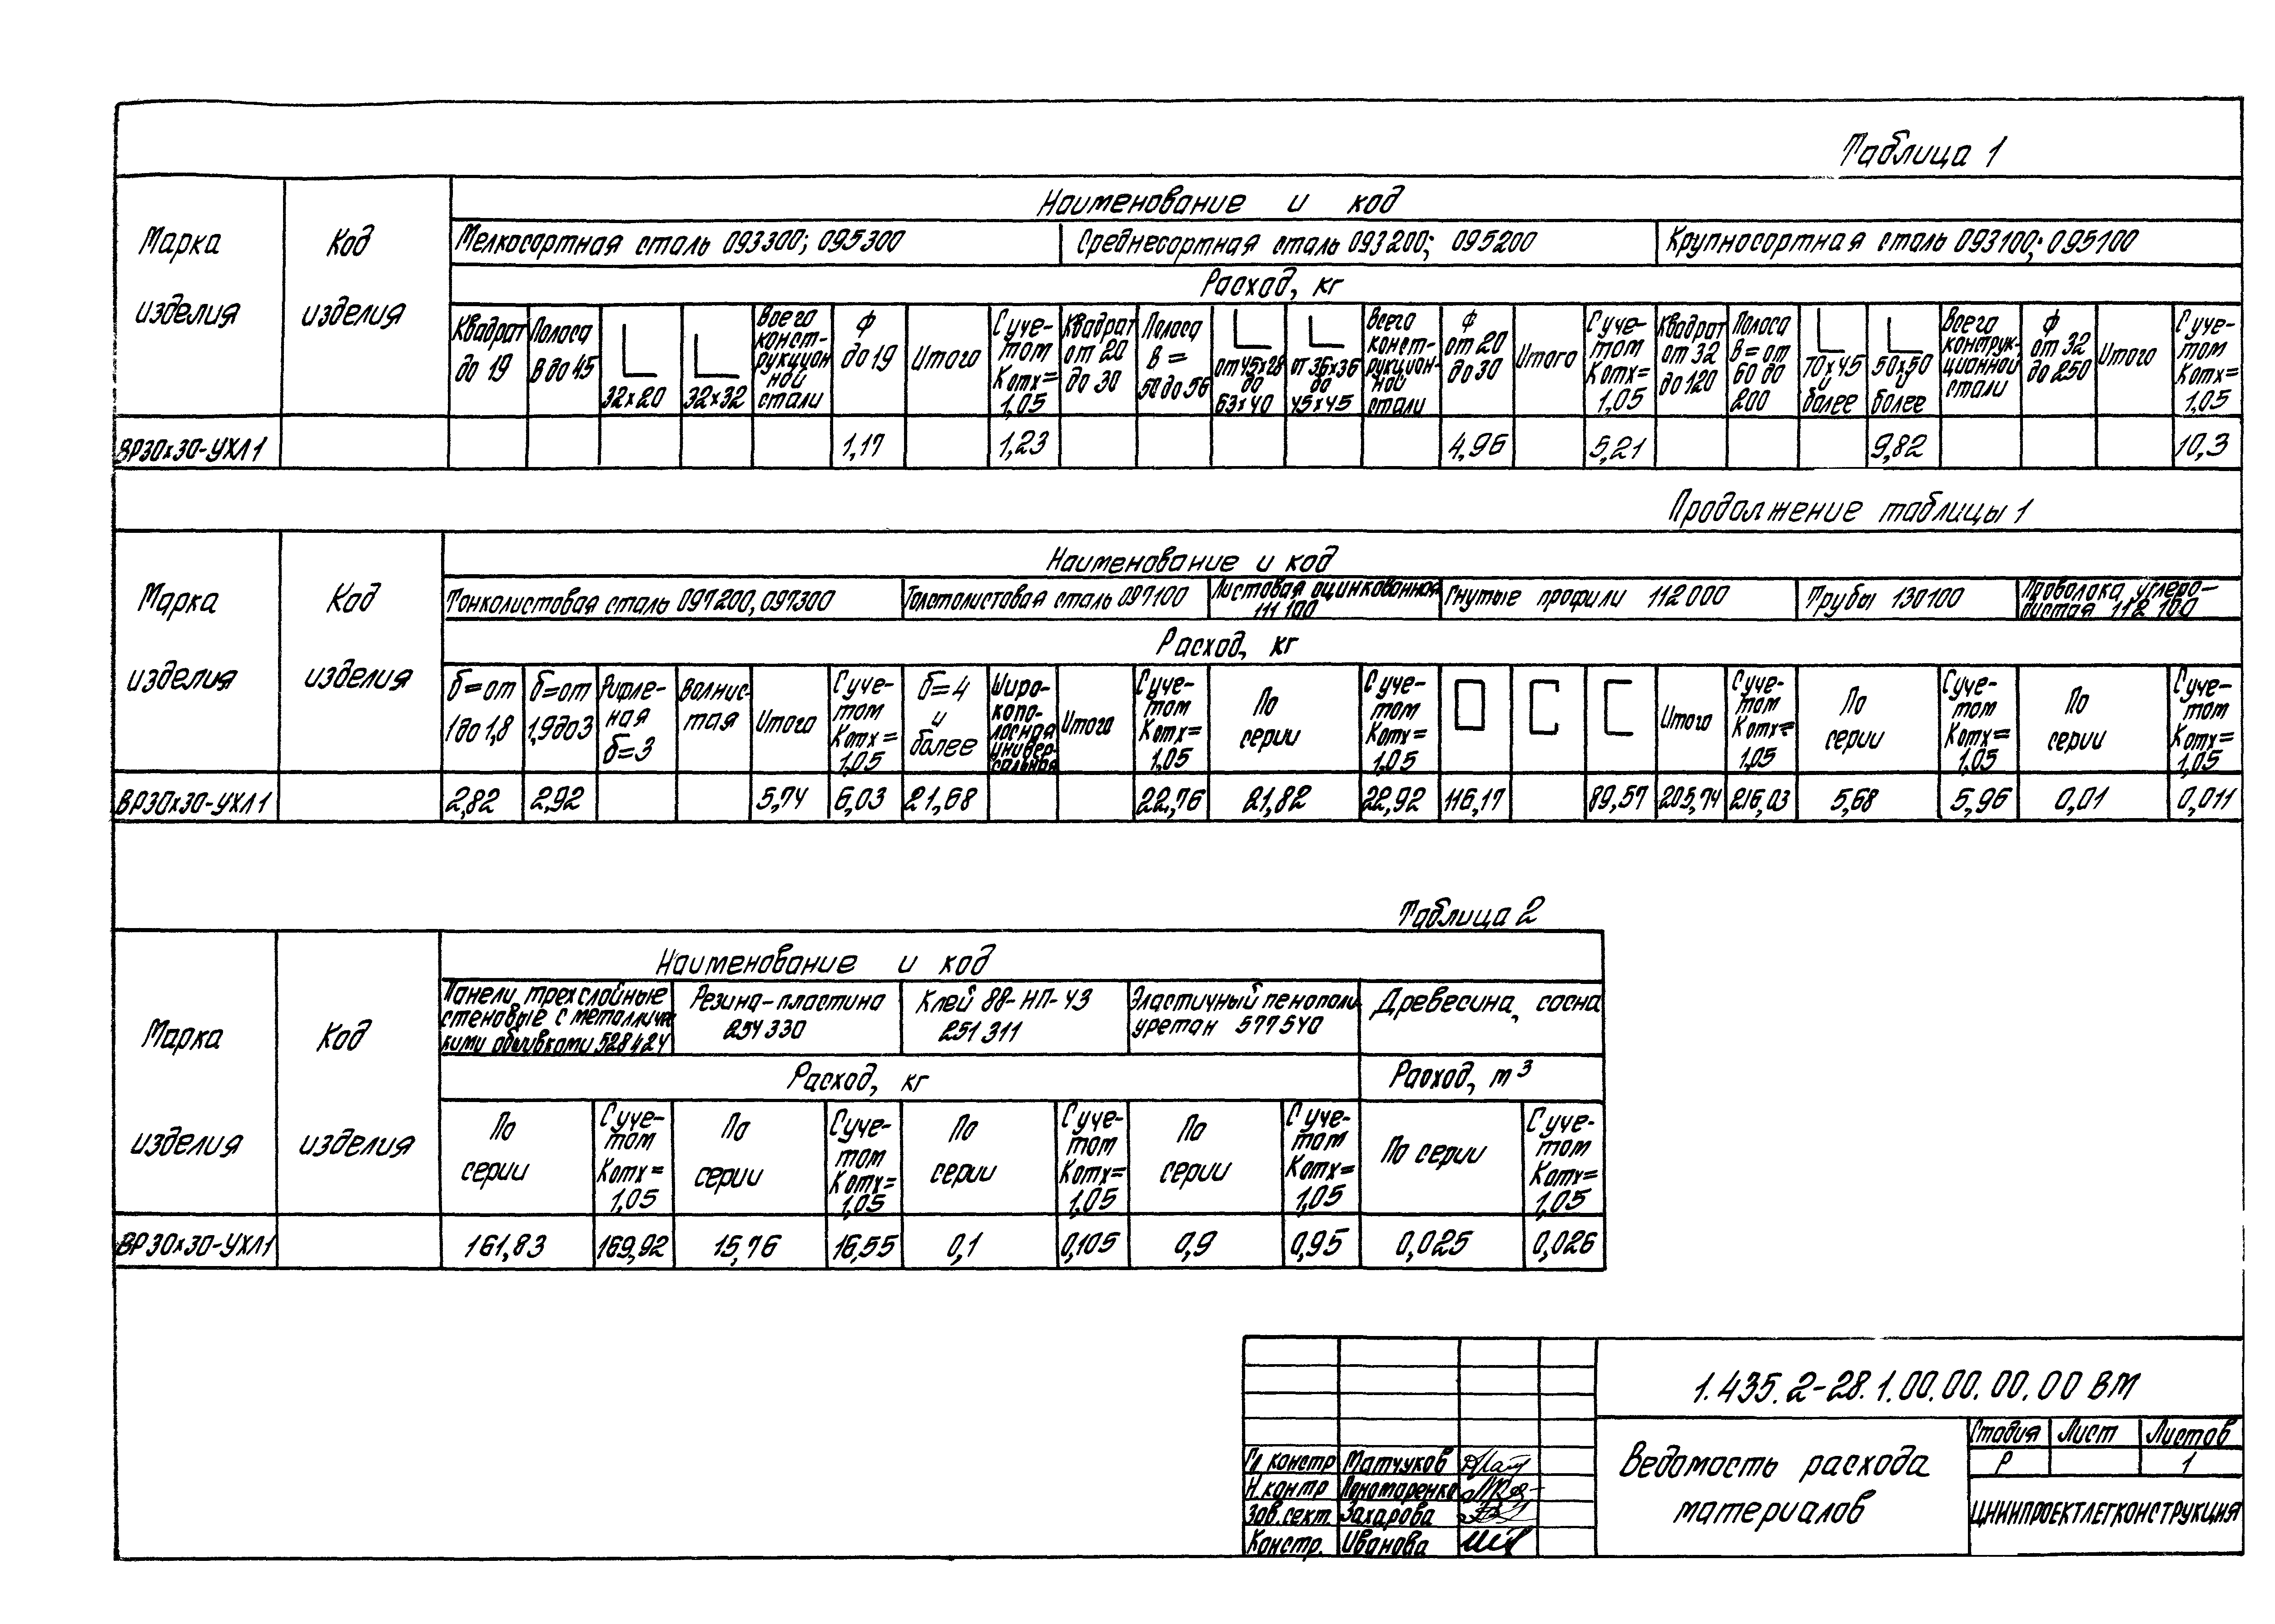 Таблица 1
Марка изделия
Код изделия
Наименование и код
Мелкосортная сталь 093300; 095300
Среднесортная сталь 093200; 095200
Крупносортная сталь 093100; 095100
Расход, кг
Квадрат до 19
Полоса В до 45
32х20
32х32
Всего конст-рукцион ной стали
Ф до 19
Итого
С уче-том Котх= 1,05
Квадрат от 20 до 30
Полоса В= 50 до 56
от 45х28 до 63х40
от 36х36 до 45х45
Всего конст-рукцион-ной стали
Ф от 20 до 30
Итого
С уче-том Котх= 1,05
Квадрат от 32 до 120
Полоса В=от 60 до 200
70х45 и более
50х50 и более
Всего конструк-ционной стали
Ф от 32 до 250
Итого
С уче-том Котх= 1,05
ВР30х30-УХЛ1 1,17 1,23 4,96 5,21 9,82 10,3
Продолжение таблицы 1
Марка изделия
Код изделия
Наименование и код
Тонколистовая сталь 097200, 097300
Толстолистовая сталь 097100
Листовая оцинкованная 111 100
Гнутые профили 112000
Трубы 130100
Проволока углеро-дистая 112 100
Расход, кг
б=от 1 до 1,8
б=от 1,9 до 3
Рифле-ная б=3
Волнис-тая
Итого
С уче-том Котх= 1,05
б=4 и более
Широ-копо-лосная универ-сальная
Итого
С уче-том Котх= 1,05
По серии
С уче-том Котх= 1,05
Итого
С уче-том Котх= 1,05
По серии
С уче-том Котх= 1,05
По серии
С уче-том Котх= 1,05
ВР30х30-УХЛ1 2,82 2,92 5,74 6,03 21,68 22,76 21,82 22,92 116,17 89,57 205,74 216,03 5,68 5,96 0,01 0,011
Таблица 2
Марка изделия
Код изделия
Наименование и код
Панели трехслойные
стеновые с металличес
кими обшивками 528424
Резина-пластина
254 330
Клей 88-НП-43
251 311
Эластичный пенополи
уретан 577540
Древесина, сосна
Расход, кг
Расход, m³
По серии
С уче-том Котх= 1,05
По серии
С уче-том Котх= 1,05
По серии
С уче-том Котх= 1,05
По серии
С уче-том Котх= 1,05
По серии
С уче-том Котх= 1,05
ВР30х30-УХЛ1 161,83 169,92 15,76 16,55 0,1 0,105 0,9 0,95 0,025 0,026
1.435.2-28.1.00.00.00.00 ВМ
Ведомость расхода
материалов
Стадия Лист Листов
Р 1
ЦНИИПРОЕКТЛЕГКОНСТРУКЦИЯ
Гл констр Матчуков
Н.контр Пономаренко
Зав.сект. Захарова
Констр. Иванова